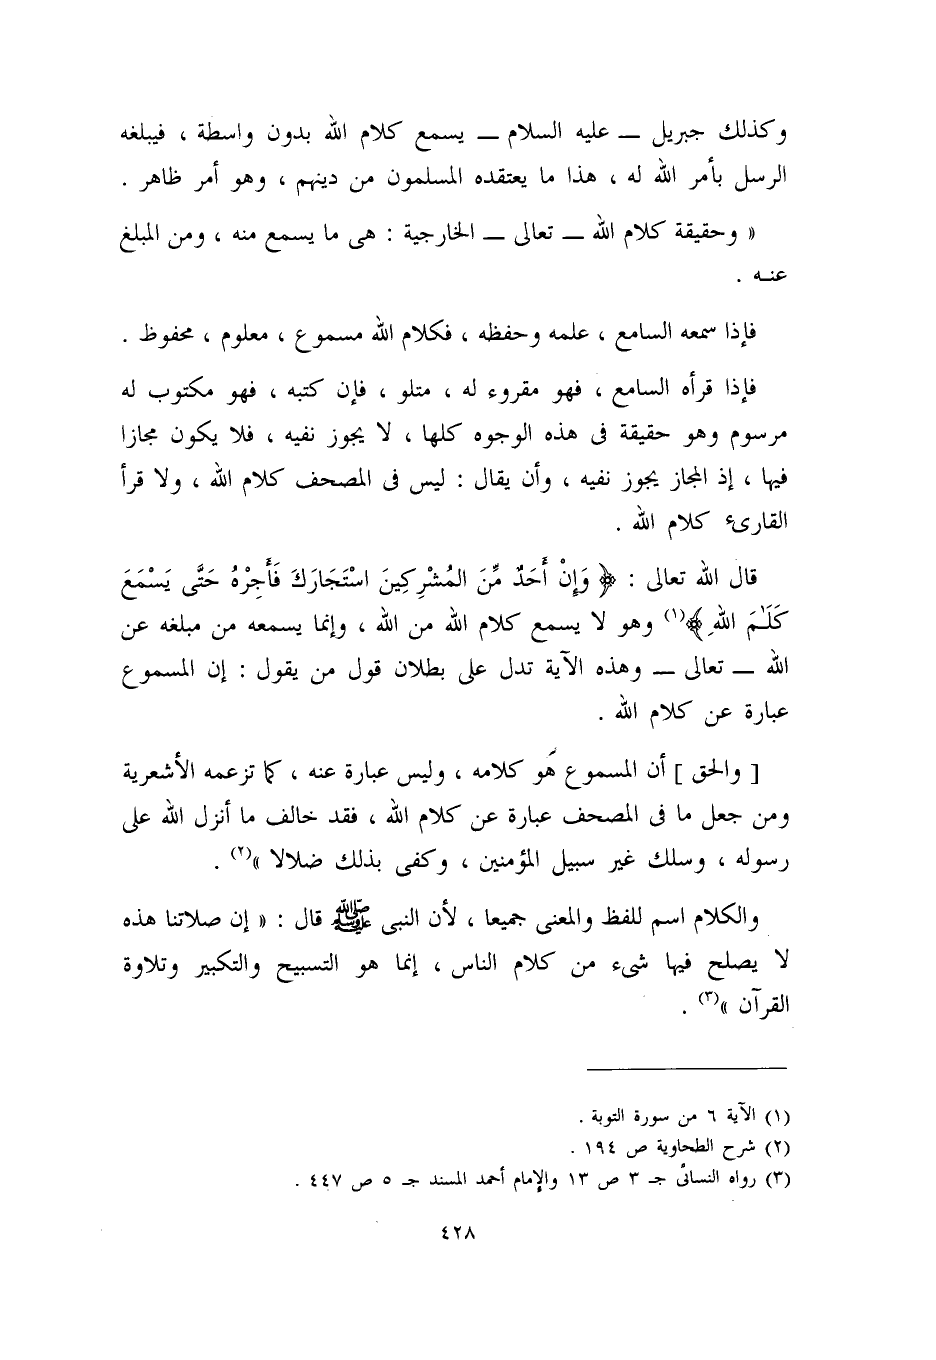 وكذلك جبريل — عليه السلام — يسمع كلام الله بدون واسطة ، فيبلغه
الرسل بأمر الله له ، هذا ما يعتقده المسلمون من دينهم ، وهو أمر ظاهر .
« وحقيقة كلام الله — تعالى — الخارجية : هى ما يسمع منه ، ومن المبلغ
عنه .
فإذا سمعه السامع ، علمه وحفظه ، فكلام الله مسموع ، معلوم ، محفوظ .
فإذا قرأه السامع ، فهو مقروء له ، متلو ، فإن كتبه ، فهو مكتوب له
مرسوم وهو حقيقة فى هذه الوجوه كلها ، لا يجوز نفيه ، فلا يكون مجازا
فيها ، إذ المجاز يجوز نفيه ، وأن يقال : ليس فى المصحف كلام الله ، ولا قرأ
القارىء كلام الله .
قال الله تعالى : ﴿ وَإِنْ أَحَدٌ مِّنَ المُشْرِكِينَ اسْتَجَارَكَ فَأَجِرْهُ حَتَّى يَسْمَعَ
كَلَـٰمَ اللهِ ﴾(١) وهو لا يسمع كلام الله من الله ، وإنما يسمعه من مبلغه عن
الله — تعالى — وهذه الآية تدل على بطلان قول من يقول : إن المسموع
عبارة عن كلام الله .
[ والحق ] أن المسموع هَو كلامه ، وليس عبارة عنه ، كما تزعمه الأشعرية
ومن جعل ما فى المصحف عبارة عن كلام الله ، فقد خالف ما أنزل الله على
رسوله ، وسلك غير سبيل المؤمنين ، وكفى بذلك ضلالا »(٢) .
والكلام اسم للفظ والمعنى جميعا ، لأن النبى ﷺ قال : « إن صلاتنا هذه
لا يصلح فيها شىء من كلام الناس ، إنما هو التسبيح والتكبير وتلاوة
القرآن »(٣) .
(١) الآية ٦ من سورة التوبة .
(٢) شرح الطحاوية ص ١٩٤ .
(٣) رواه النسائى جـ ٣ ص ١٣ والإمام أحمد المسند جـ ٥ ص ٤٤٧ .
٤٢٨